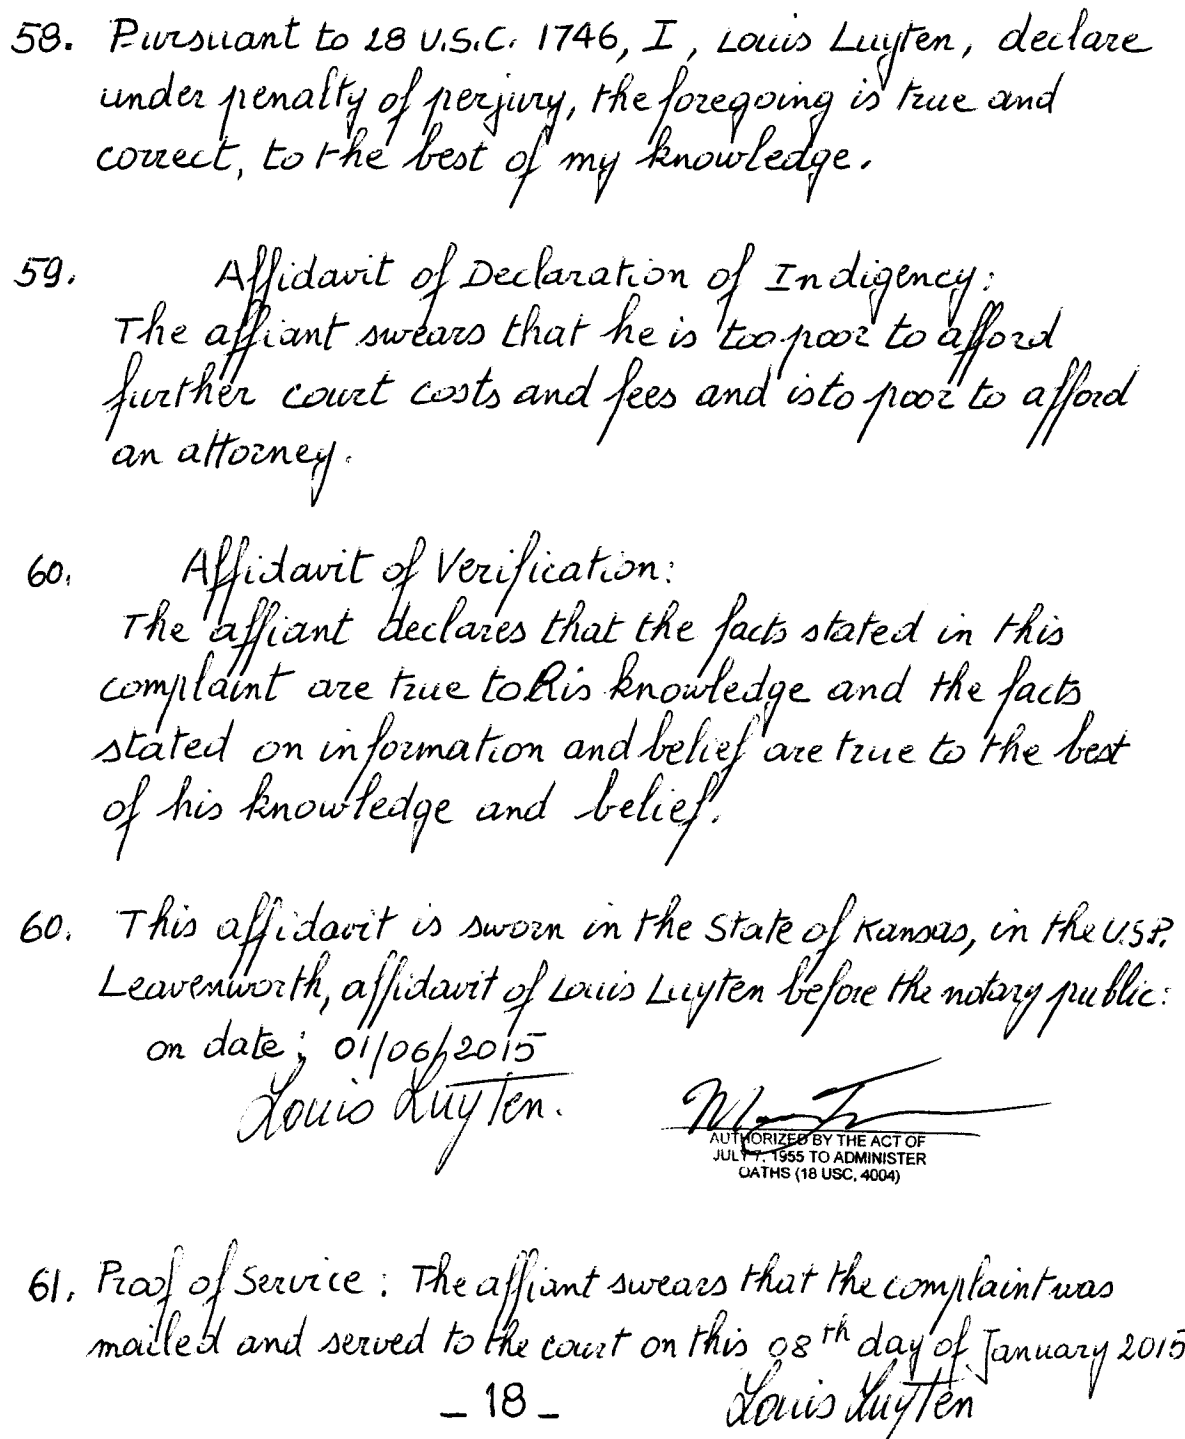 58. Pursuant to 28 U.S.C. 1746, I, Louis Luyten, declare
under penalty of perjury, the foregoing is true and
correct, to the best of my knowledge.
59. Affidavit of Declaration of Indigency:
The affiant swears that he is too poor to afford
further court costs and fees and is to poor to afford
an attorney.
60. Affidavit of Verification:
The affiant declares that the facts stated in this
complaint are true to his knowledge and the facts
stated on information and belief are true to the best
of his knowledge and belief.
60. This affidavit is sworn in the State of Kansas, in the U.S.P.
Leavenworth, affidavit of Louis Luyten before the notary public:
on date; 01/06/2015
Louis Luyten.
AUTHORIZED BY THE ACT OF
JULY 7, 1955 TO ADMINISTER
OATHS (18 USC, 4004)
61. Proof of Service: The affiant swears that the complaint was
mailed and served to the court on this 08th day of January 2015
_ 18 _ Louis Luyten